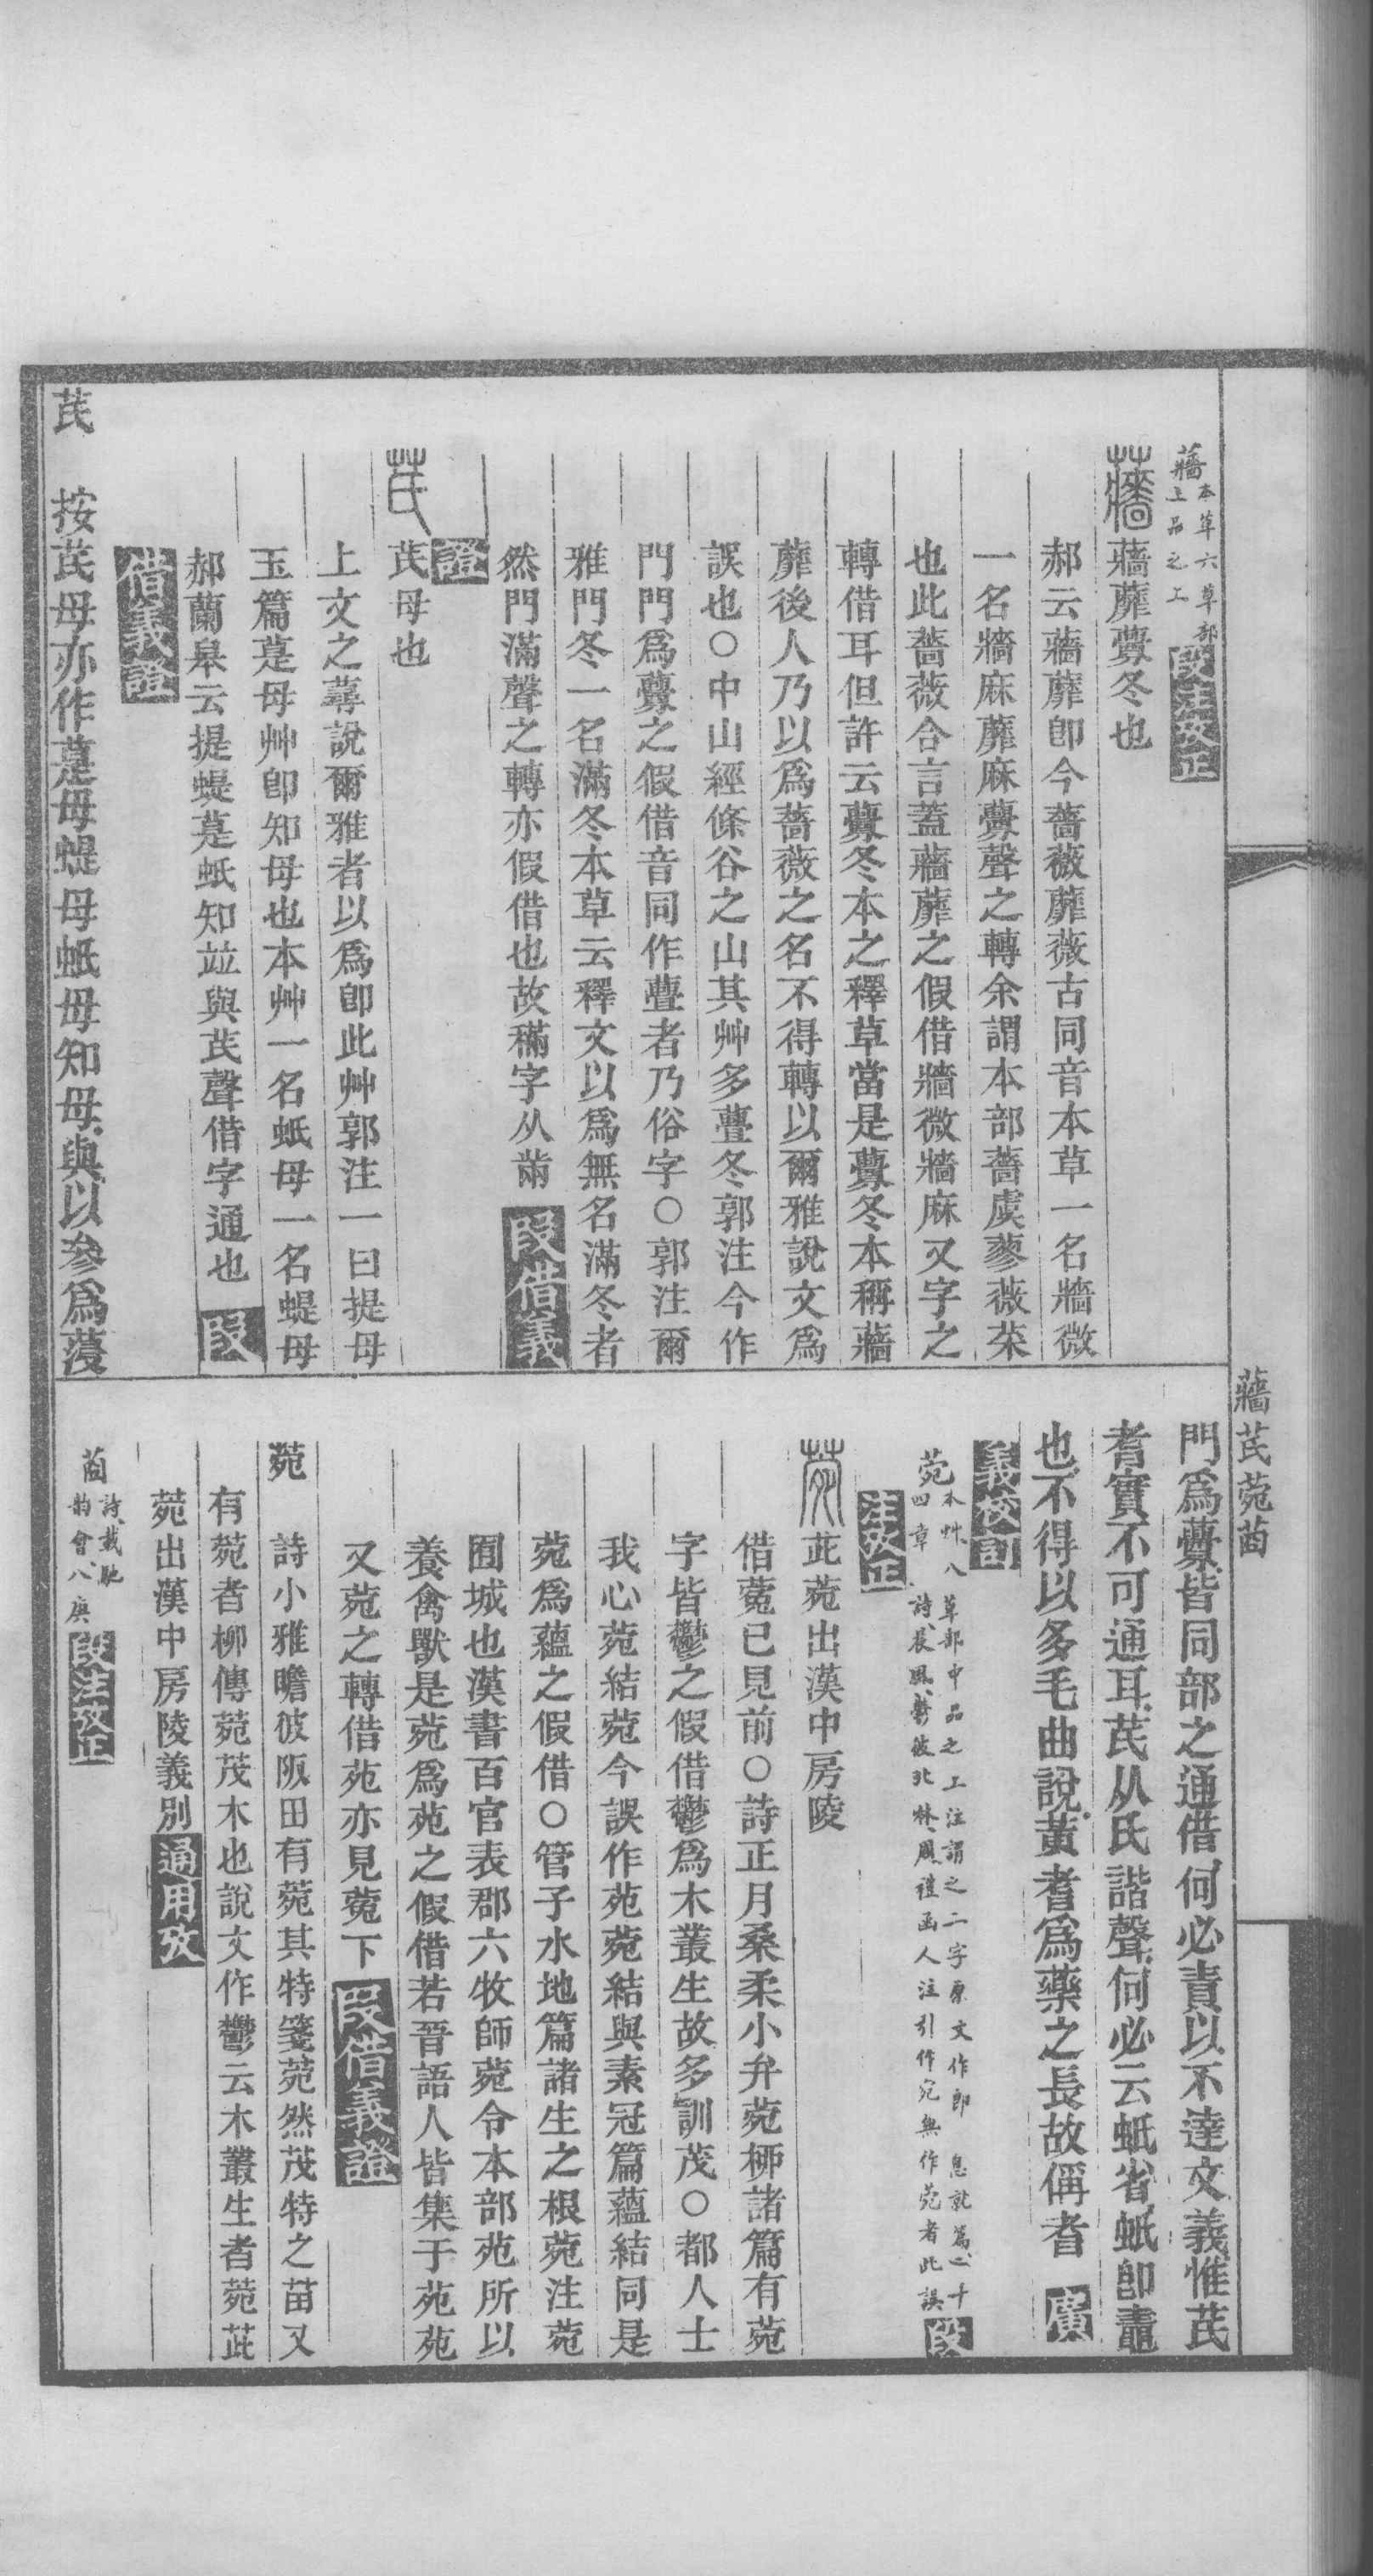 蘠本草六草部上品之上 段注攷正
蘠 蘠蘼虋冬也
郝云蘠蘼卽今薔薇蘼薇古同音本草一名牆微
一名牆麻蘼麻虋聲之轉余謂本部薔虞蓼薇菜
也此薔薇合言蓋蘠蘼之假借牆微牆麻又字之
轉借耳但許云虋冬本之釋草當是虋冬本稱蘠
蘼後人乃以爲薔薇之名不得轉以爾雅說文爲
誤也○中山經條谷之山其艸多虋冬郭注今作
門門爲虋之假借音同作亹者乃俗字○郭注爾
雅門冬一名滿冬本草云釋文以爲無名滿冬者
然門滿聲之轉亦假借也故㒼字从㒼 段借義
證
芪 芪母也
上文之蕁說爾雅者以爲卽此艸郭注一曰提母
玉篇莡母艸卽知母也本艸一名蚔母一名蝭母
郝蘭皋云提蝭莡蚔知竝與芪聲借字通也 段
借義證
芪 按芪母亦作莡母蝭母蚔母知母與以參爲蓡
蘠芪菀茵
門爲虋皆同部之通借何必責以不達文義惟芪
耆實不可通耳芪从氏諧聲何必云蚔省蚔卽䘍
也不得以多毛曲說黃耆爲藥之長故偁耆 廣
義校訂
菀本艸八草部中品之上注謂之二字原文作卽 急就篇二十四章 詩晨風鬱彼北林周禮函人注引作宛無作菀者此誤 段
注攷正
菀 茈菀出漢中房陵
借薍已見前○詩正月桑柔小弁菀桺諸篇有菀
字皆鬱之假借鬱爲木叢生故多訓茂○都人士
我心菀結菀今誤作苑菀結與素冠篇蘊結同是
菀爲蘊之假借○管子水地篇諸生之根菀注菀
囿城也漢書百官表郡六牧師菀令本部苑所以
養禽獸是菀爲苑之假借若晉語人皆集于苑苑
又菀之轉借苑亦見薍下 段借義證
菀 詩小雅瞻彼阪田有菀其特箋菀然茂特之苗又
有菀者柳傳菀茂木也說文作鬱云木叢生者菀茈
菀出漢中房陵義別 通用攷
茵詩載馳 韵會八庚 段注攷正